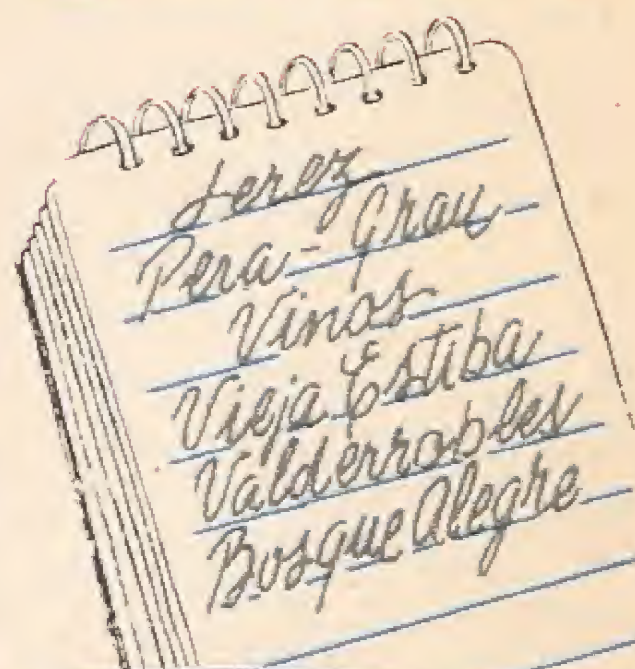 Jerez
Pera-Grau
Vinos
Vieja Estiba
Valderrobles
Bosque Alegre